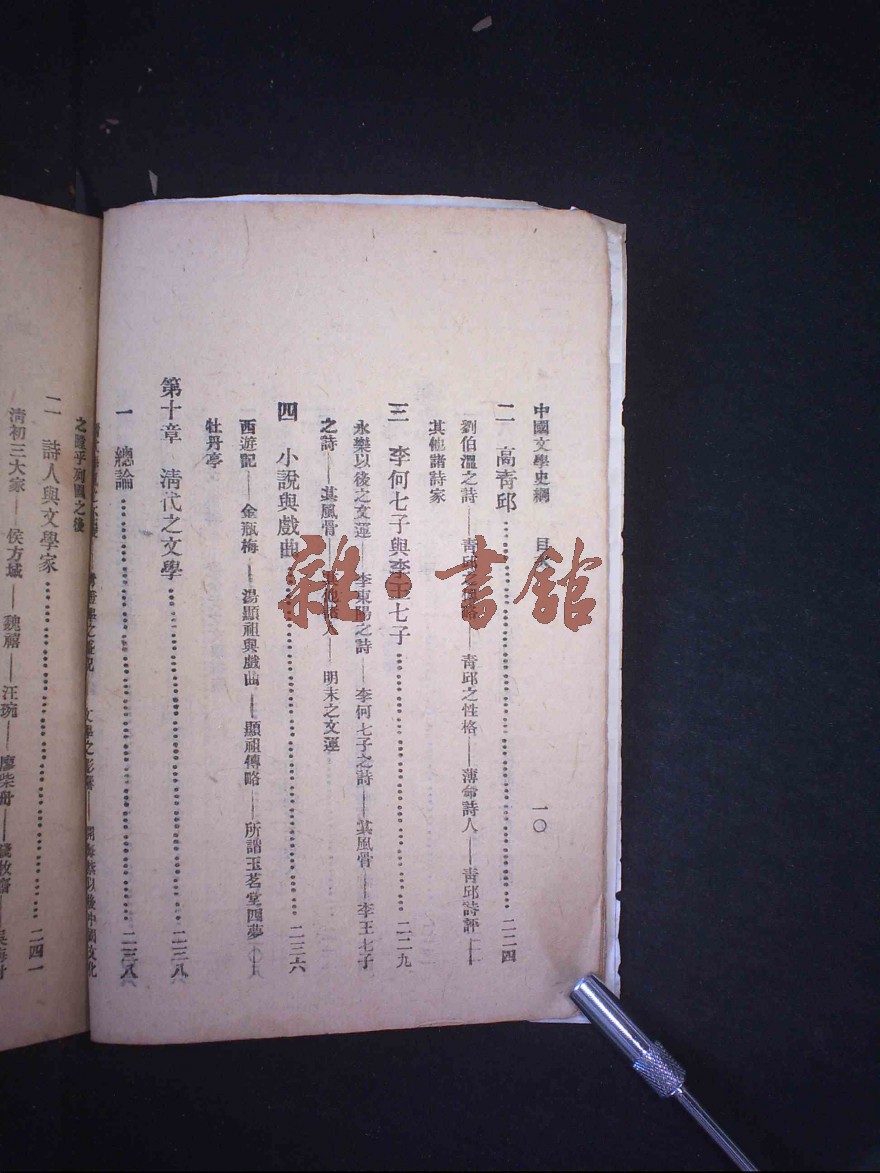 中國文學史綱 目次 一〇
二 高青邱…………二二四
劉伯溫之詩——青邱之傳略——青邱之性格——薄命詩人——青邱詩評——
其他諸詩家
三 李何七子與李王七子…………二二九
永樂以後之文運——李東陽之詩——李何七子之詩——其風骨——李王七子
之詩——其風骨——其他諸人——明末之文運
四 小說與戲曲…………二三六
西遊記——金瓶梅——湯顯祖與戲曲——顯祖傳略——所謂玉茗堂四夢
牡丹亭
第十章 清代之文學…………二三八
一 總論…………二三八
文學之影響
以後中國文化
之後
二 詩人與文學家…………二四一
清初三大家——侯方域——魏禧——汪琬——廖柴舟
雜·書館